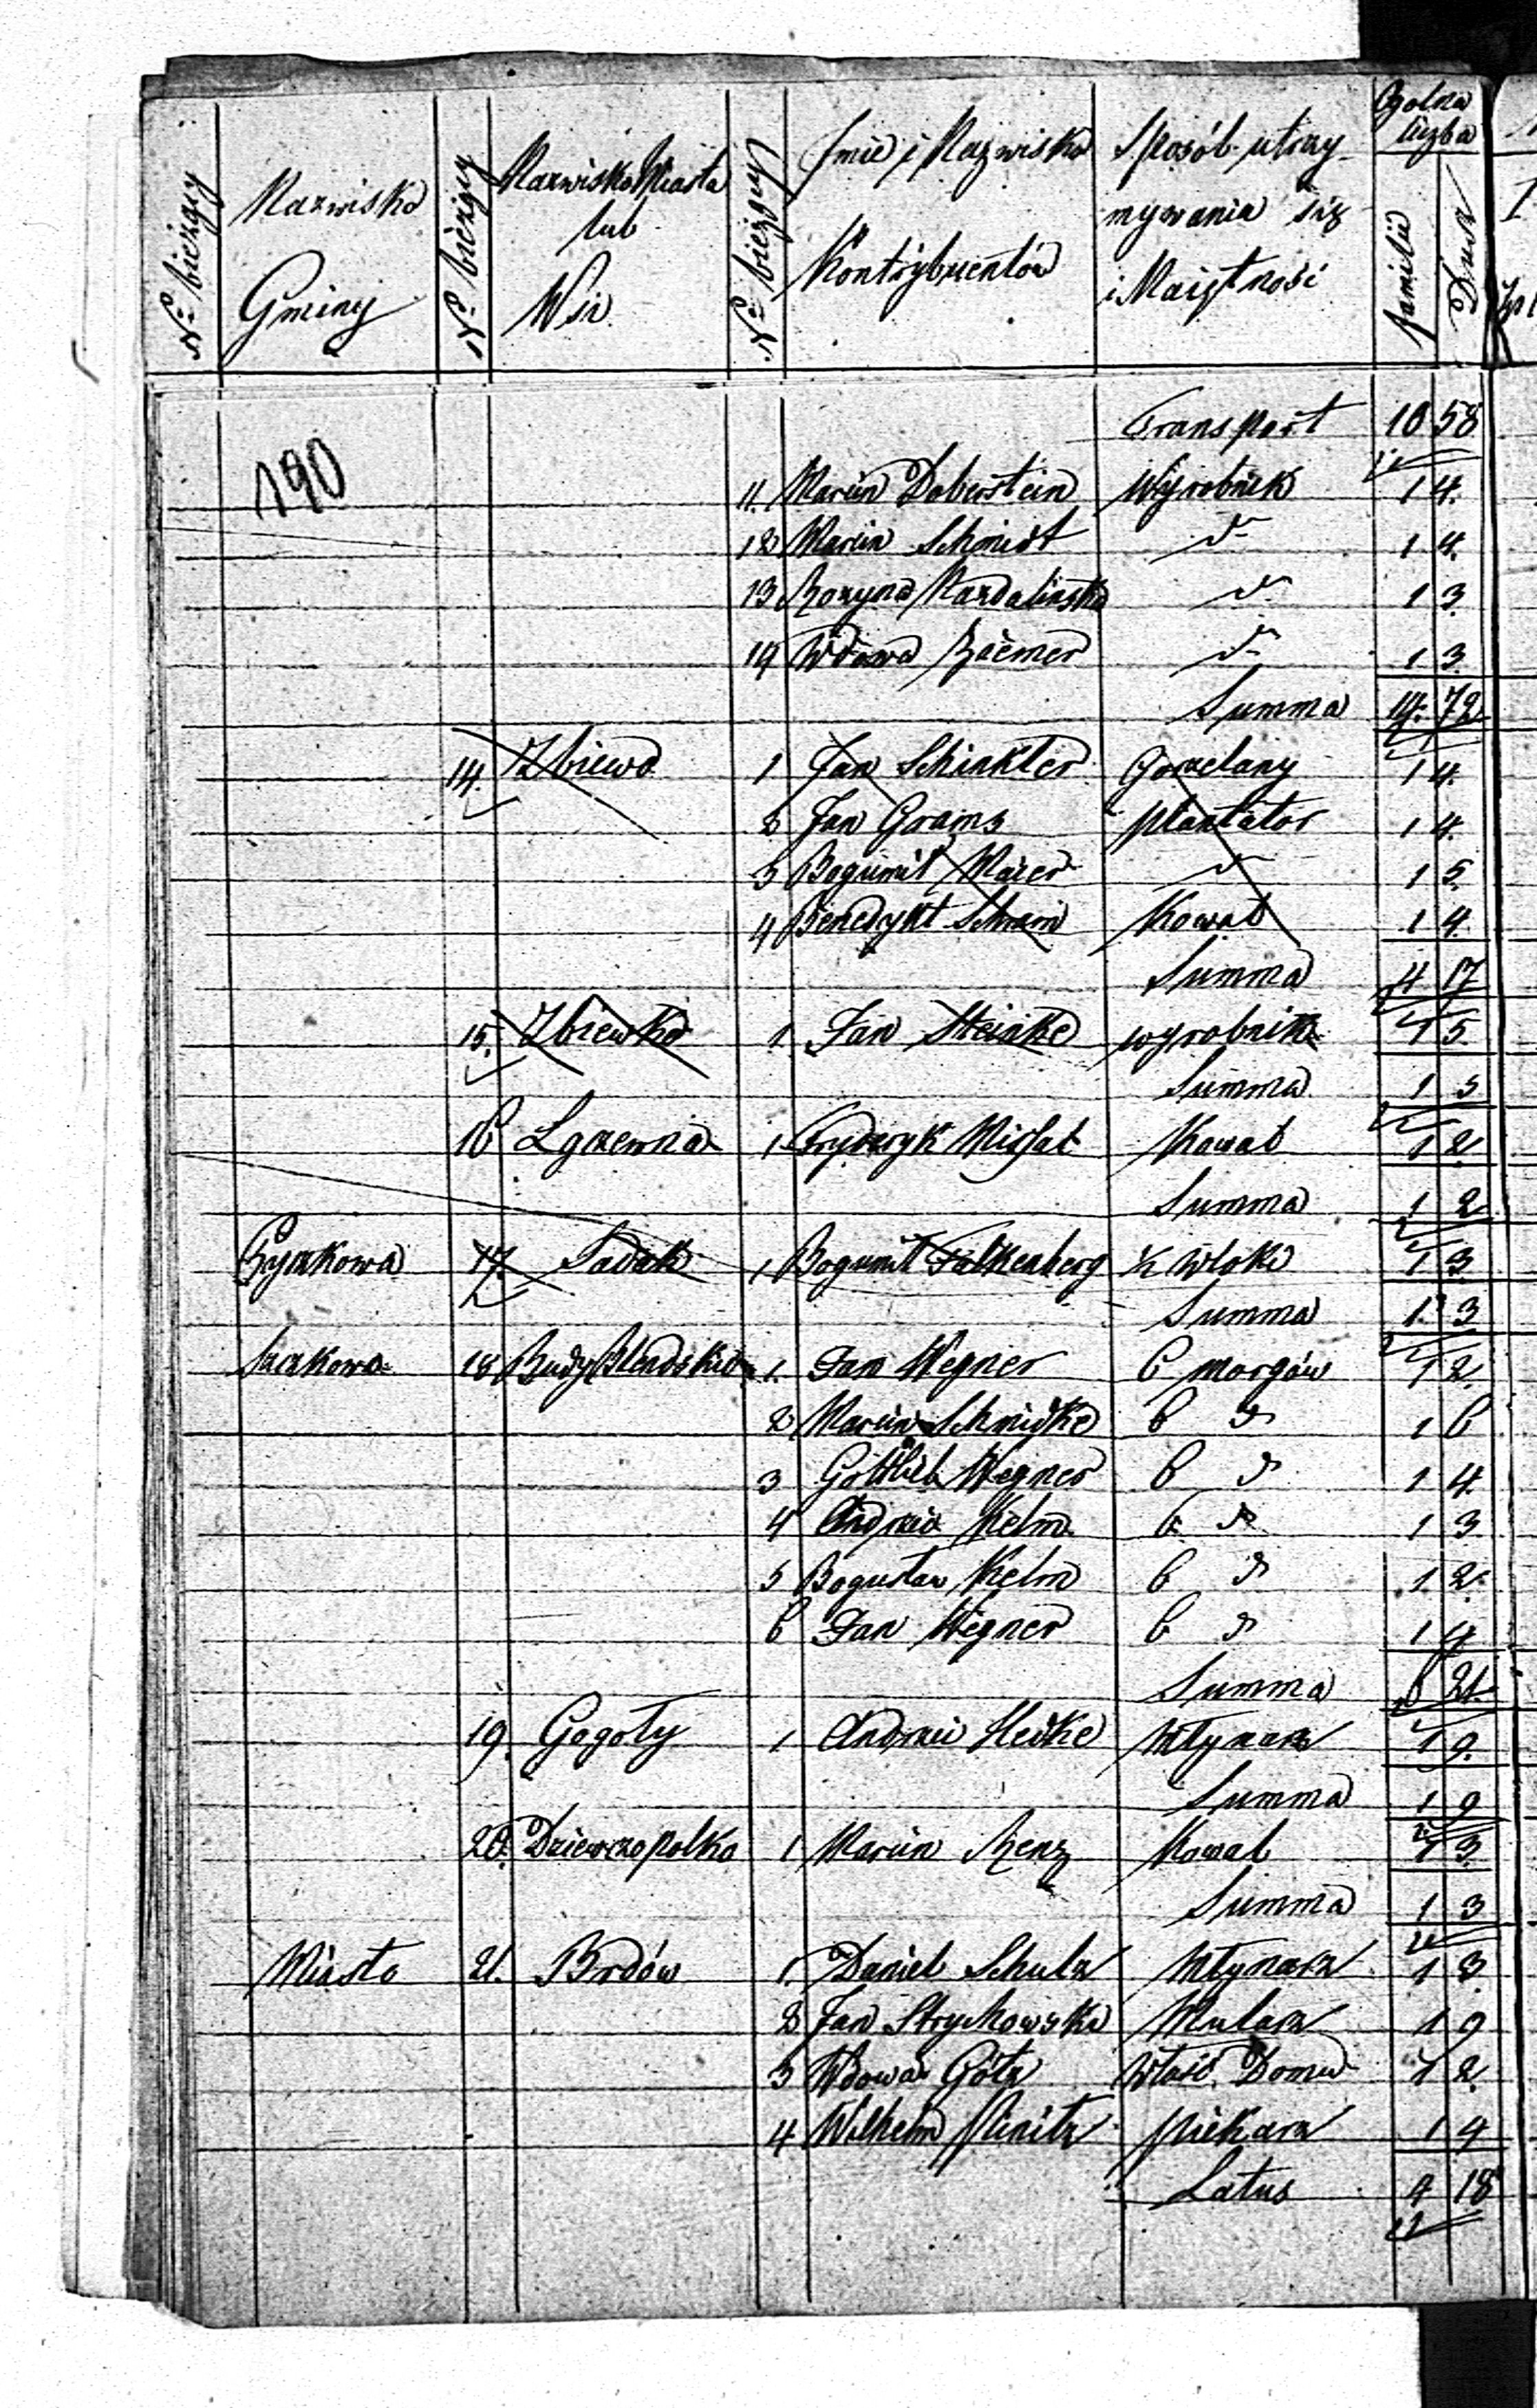 Nº bieżący
Nazwisko Gminy
Nº bieżący
Nazwisko Miasta lub Wsi
Nº bieżący
Imie i Nazwisko Kontrybuentów
Sposób utrzymywania się i Maiętności
Ogólna liczba
familii
Dusz
Transport 10 58
190
11. Marcin Doberstein Wyrobnik 1 4.
12 Marcin Schmidt d- 1 4.
13 Rozyna d- 1 3.
14 Wdowa d- 1 3.
Summa 14. 72
14. Zbiewo 1 Jan Schinkler Gorzelany 1 4.
2 Jan Grams plantator 1 4.
3 Bogumił Maier d- 1 5.
4 Benedykt Schram Kowal 1 4.
Summa 4 17
15. Zbiewko 1. Jan Steinke wyrobnik 1 5.
Summa 1 5
16 1 Frydryk Kowal 1 2.
Summa 1 2
17. Sadek 1 Bogumił Falkenberg ½ włoki 1 3
Summa 1. 3
18 Budy 1. Jan Wegner 6 morgów 1 2.
2 Marcin Schmidke 6 d 1 6
3 Gottlieb Wegner 6 d 1 4.
4 Andrzei Kelm 6 d 1 3
5 Bogusław Kelm 6 d 1 2.
6 Jan Wegner 6 d 1 4
Summa 6 21.
19. Gogoły 1 Andrzei Młynarz 1 9.
Summa 1 9
20. Dziewczopolko 1 Marcin Renz Kowal 1 3.
Summa 1 3
Miasto 21. Brdów 1. Daniel Schulz Młynarz 1 3.
2 Jan Strychowski Mularz 1 9
3 Wdowa Götz Właśc. Domu 1 2.
4 Wilhelm piekarz 1 4
Latus 4 18